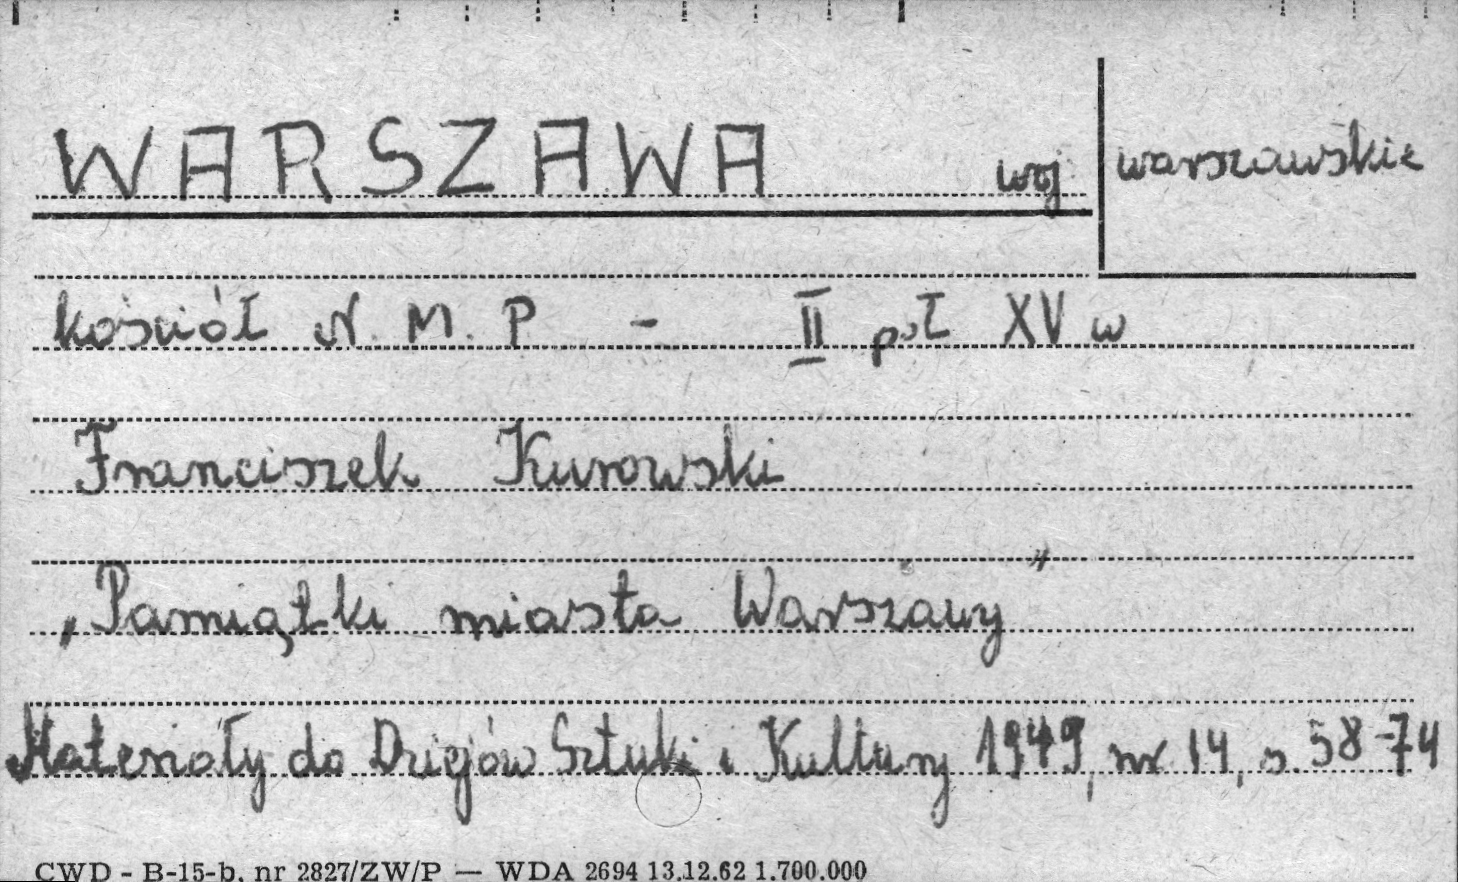 WARSZAWA woj warszawskie
kościół N. M. P - II poł XV w
Franciszek Kurowski
„Pamiątki miasta Warszawy"
Materiały do Dziejów Sztuki i Kultury 1949, nr 14, s. 58-74
CWD - B-15-b, nr 2827/ZW/P — WDA 2694 13.12.62 1.700.000